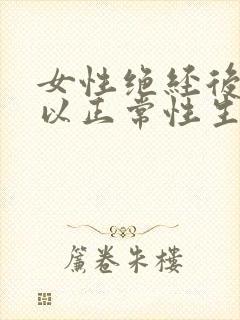 女性绝经後
以正常性生
簾卷朱樓